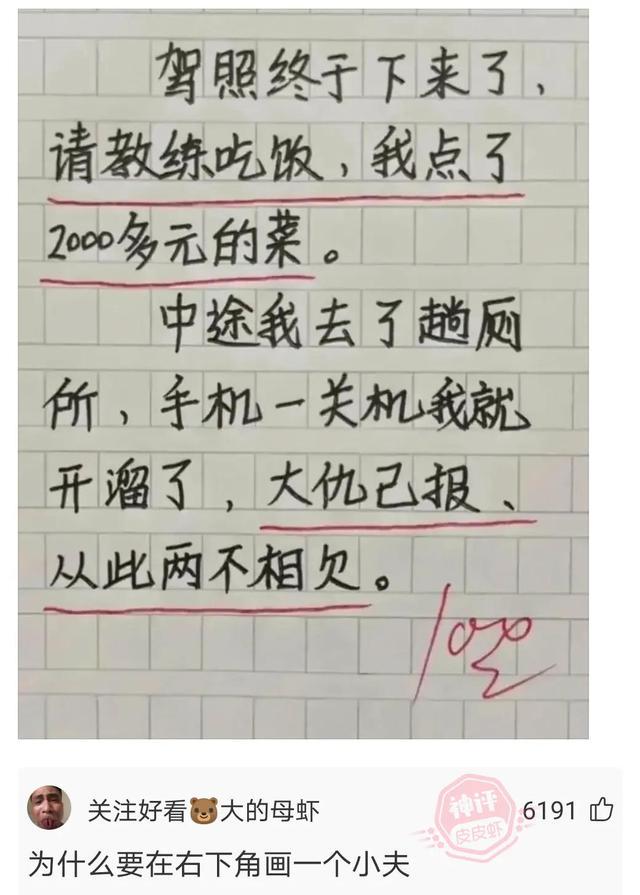 驾照终于下来了,
请教练吃饭,我点了
2000多元的菜。
中途我去了趟厕
所,手机一关机我就
开溜了,大仇己报、
从此两不相欠。
100
关注好看🐻大的母虾
神评
皮皮虾
6191
为什么要在右下角画一个小夫